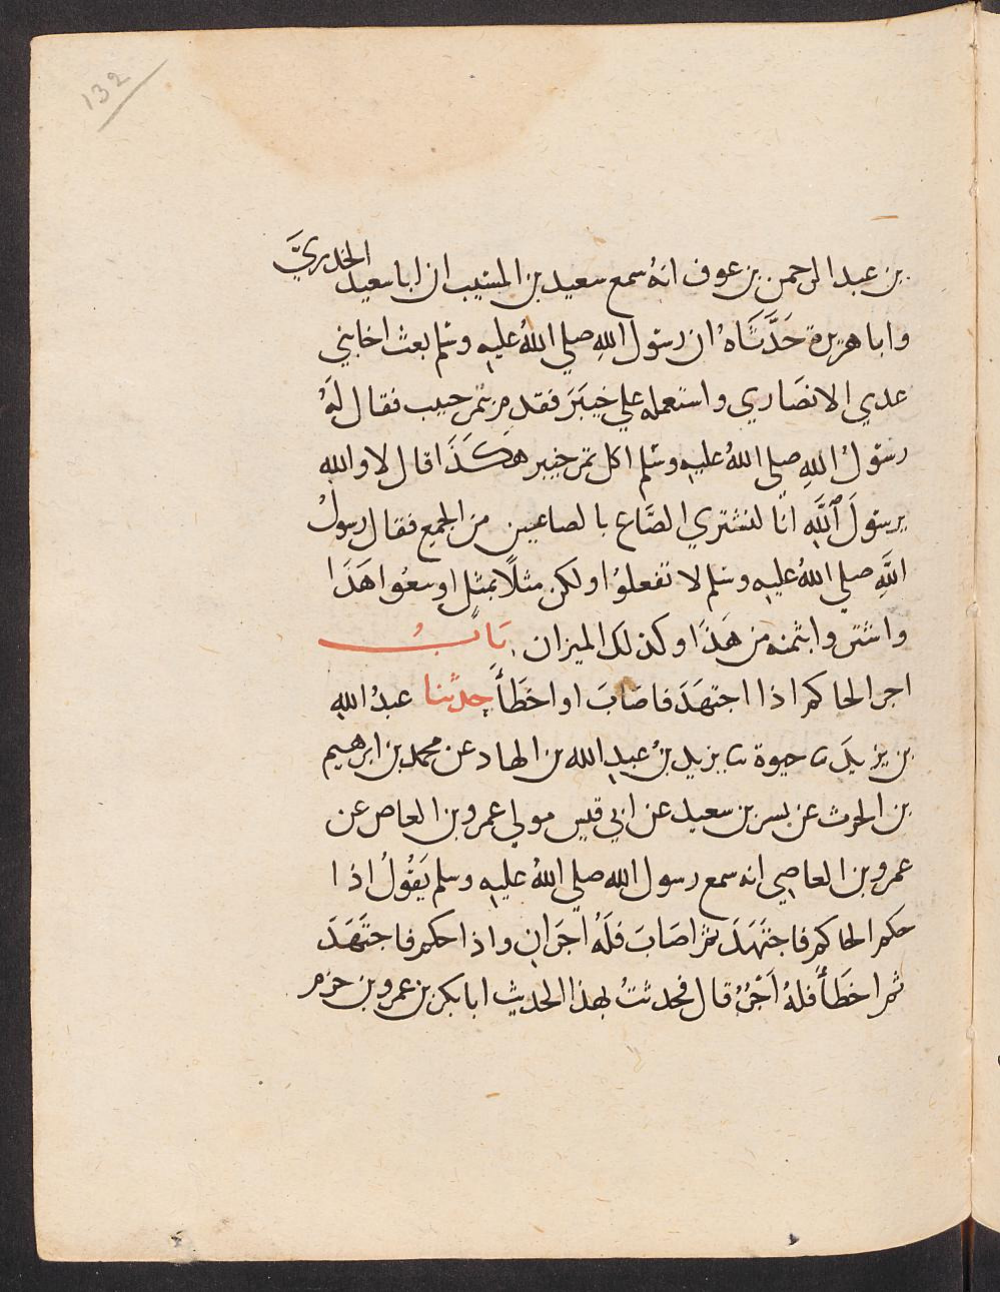 132
بن عبد الرحمن بن عوف انهُ سمع سعيد بن المسَيب ان ابا سعيد الخدريَّ
وابا هريرة حَدَّثَاهُ ان رسَول اللهِ صلي اللهُ عليهِ وسَلم بعث اخا بني
عدي الانصَاري واستعمله علي خيبَرَ فقدم بتمر جنيب فقال لهُ
رسَولُ اللهِ صلي اللهُ عليهِ وسَلم اكل تمر خيبر هكَذَا قال لا والله
يرسَولَ اللَّهِ انَّا لنشتري الصَّاع بالصاعين من الجمع فقال رسولُ
اللَّهِ صلي اللهُ عليهِ وسَلم لا تفعلوُا ولكن مثلًا بمثلٍ او بيعُوا هَذَا
واشتروا بثمنه من هَذَا وكذلك الميزان بَابُ
اجر الحاكم اذا اجتهَدَ فاصَابَ او اخطَأَ حدثنا عبدُ اللهِ
بن يزيدَ نا حيوة نا يزيد بنُ عبدِ الله بن الهاد عن محمد بن ابرهيم
بن الحرث عن بسر بن سعيد عن ابي قيس مولي عمرو بن العاص عن
عمرو بن العاصِي انه سمع رسول الله صلي اللهُ عليهِ وسلم يَقُولُ اذا
حكم الحاكم فاجتَهَدَ ثم اصَابَ فلَهُ اجرَانِ واذا حكم فاجتَهَدَ
ثم اخطَأَ فلهُ اَجْرٌ قال فحدثتُ بهذا الحديث ابا بكر بن عمرو بن حزم